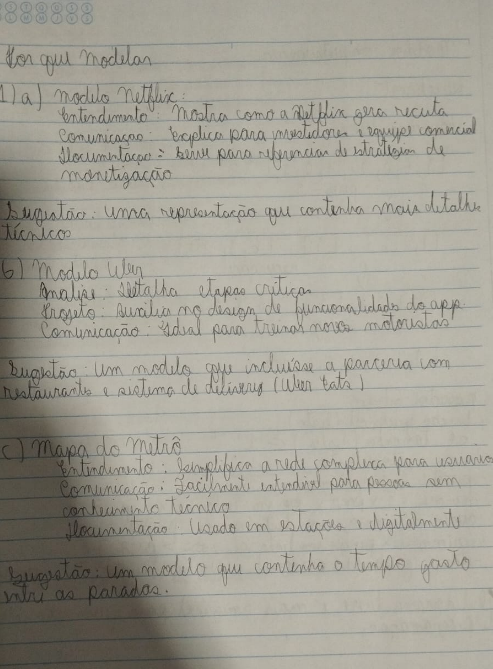 Por que modelar
1) a) modelo netflix:
Entendimento: mostra como a Netflix gera receita
Comunicação: Explica para investidores e equipe comercial
Documentação: serve para referencias de estratégias de
monetização
Sugestão: uma representação que contenha mais detalhes
técnicos
b) modelo Uber
Analise: Detalha etapas criticas
Projeto: Auxilia no design de funcionalidades do app
Comunicação: Ideal para treinar novos motoristas
Sugestão: um modelo que incluisse a parceria com
restaurantes e sistema de delivery (Uber Eats)
c) mapa do metrô
Entendimento: Simplifica a rede complexa para usuario
Comunicação: Facilmente entendivel para pessoas sem
conhecimento técnico
Documentação: Usado em estações e digitalmente
Sugestão: um modelo que contenha o tempo gasto
entre as paradas.